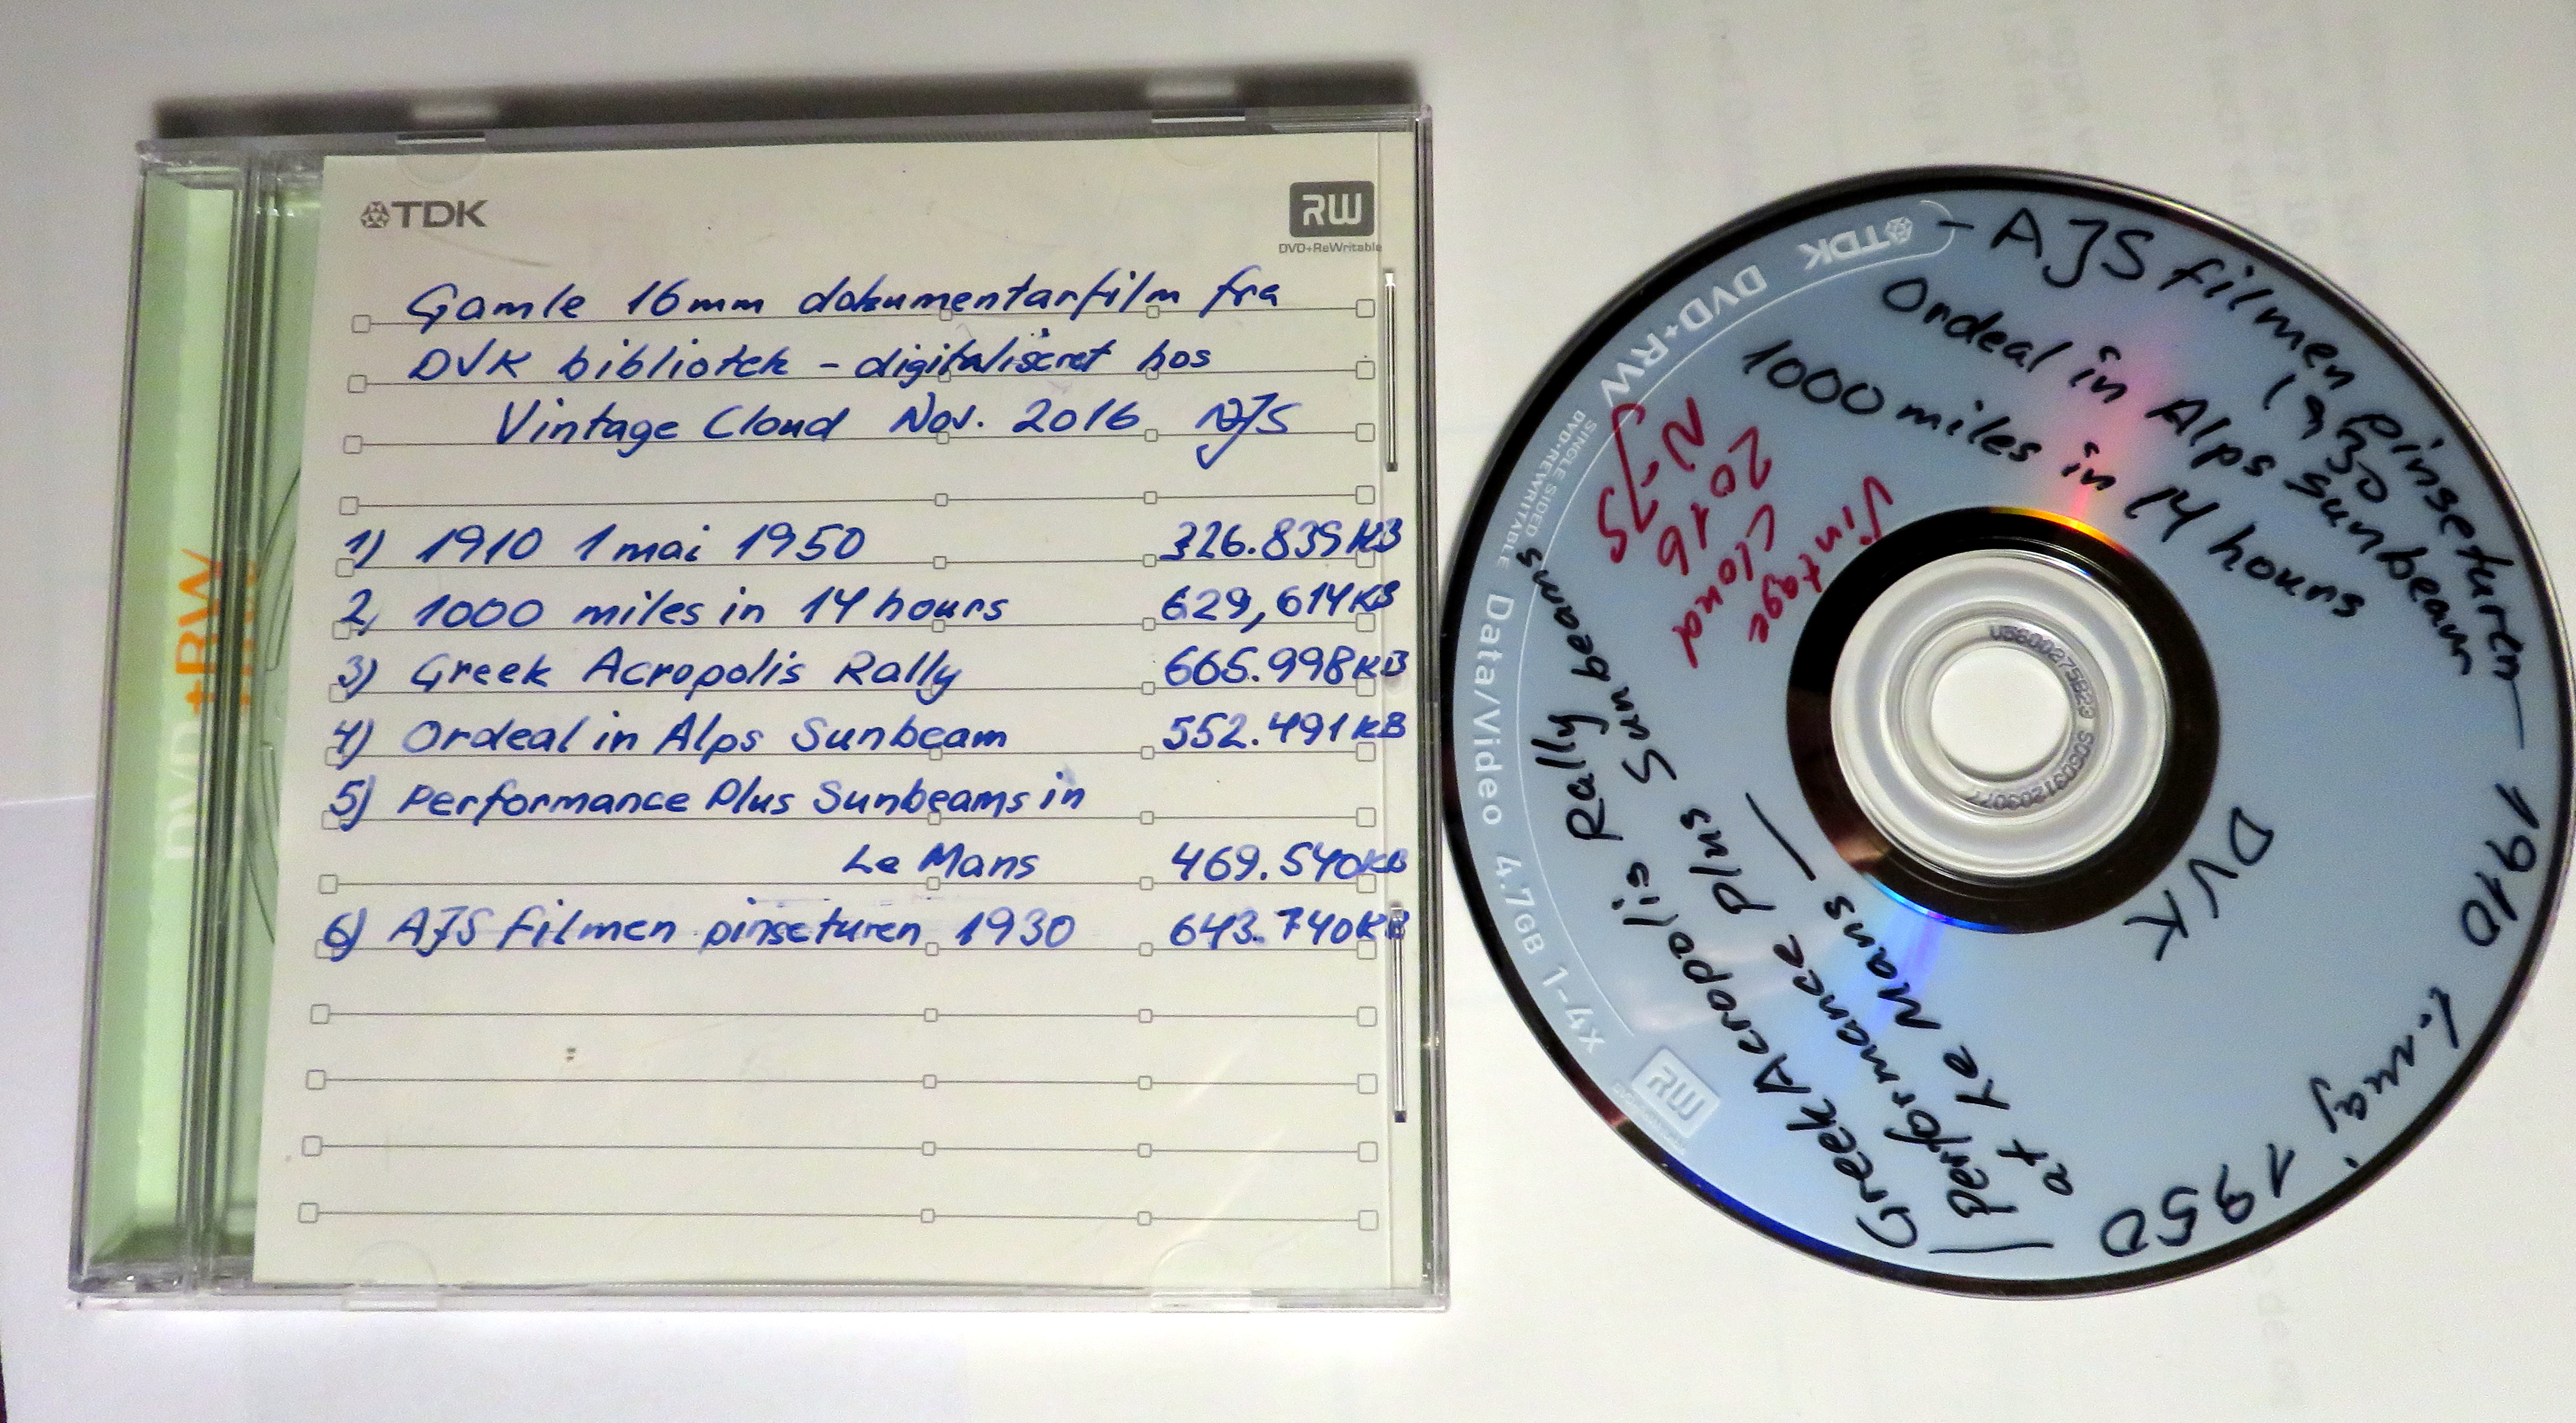 TDK
RW
DVD+ReWritable
Gamle 16mm dokumentarfilm fra
DVK bibliotek - digitaliseret hos
Vintage Cloud Nov. 2016 NJS
1) 1910 1 mai 1950 326.839KB
2) 1000 miles in 14 hours 629,614KB
3) Greek Acropolis Rally 665.998KB
4) Ordeal in Alps Sunbeam 552.491KB
5) Performance Plus Sunbeams in
Le Mans 469.540KB
6) AJS filmen pinseturen 1930 643.740KB
DVD+RW
TDK DVD+RW
SINGLE SIDED
DVD+REWRITABLE
Data/Video 4.7GB 1-4X
RW
- AJS filmen pinseturen -
1930
Ordeal in Alps Sunbeam
1000 miles in 14 hours
Vintage
Cloud
2016
NJS
DVK
1910 1. maj 1950
Greek Acropolis Rally Sunbeams
Performance Plus Sunbeams
at Le Mans